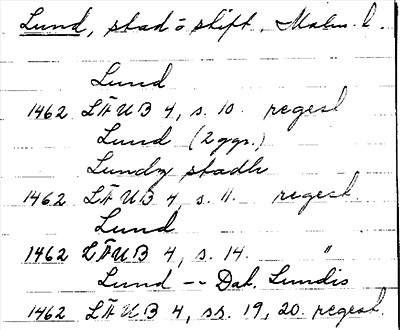 Lund, stad o stift, Malm. l.
Lund
1462 LÄUB 4, s. 10. regest
Lund (2 ggr.)
Lundz stadh
1462 LÄUB 4, s. 11. regest.
Lund
1462 LÄUB 4, s. 14. "
Lund -- Dat. Lundis
1462 LÄUB 4, ss. 19, 20. regest.